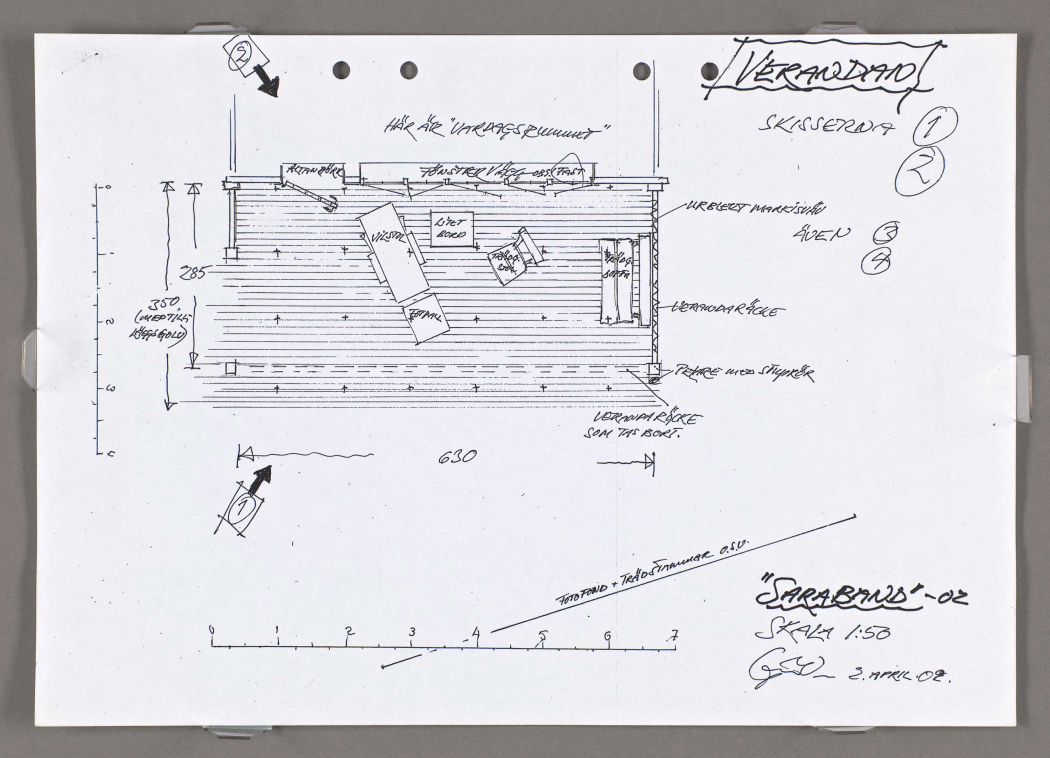 VERANDAN
SKISSERNA 1
2
ÄVEN 3
4
2
HÄR ÄR "VARDAGSRUMMET"
ALTANDÖRR
FÖNSTERVÄGG - OBS FAST
URBLEKT MARKISVÄV
VILSTOL
LITET
BORD
TRÄDG.
STOL
TRÄDG.
SOFFA
285
350
(MED TILL-
LÄGGSGOLV)
VERANDARÄCKE
FOTPALL
VERANDARÄCKE
SOM TAS BORT.
630
1
0 1 2 3
FOTOFOND + TRÄDSTAMMAR O.S.V.
0 1 2 3 4 5 6 7
"SARABAND" - 02
SKALA 1:50
2. APRIL. 02.